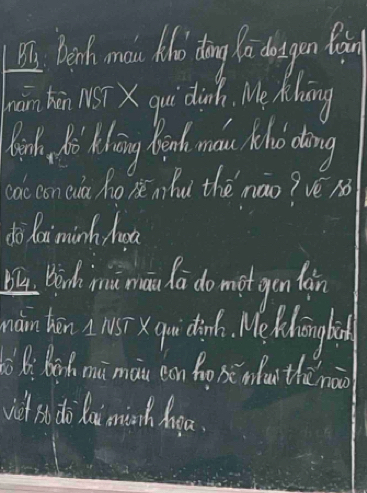 BT3: Bệnh máu khó đông là do 1 gen lặn
nằm trên NST X qui định. Mẹ không
bệnh, bố không bệnh máu khó đông
các con của họ sẽ như thế nào? vẽ sơ
đồ lai minh họa
BT4. Bệnh mù màu là do một gen lặn
nằm trên 1 NST X qui định. Mẹ không bệnh
bố bị bệnh mù màu con họ sẽ như thế nào
viết sơ đồ lai minh họa.